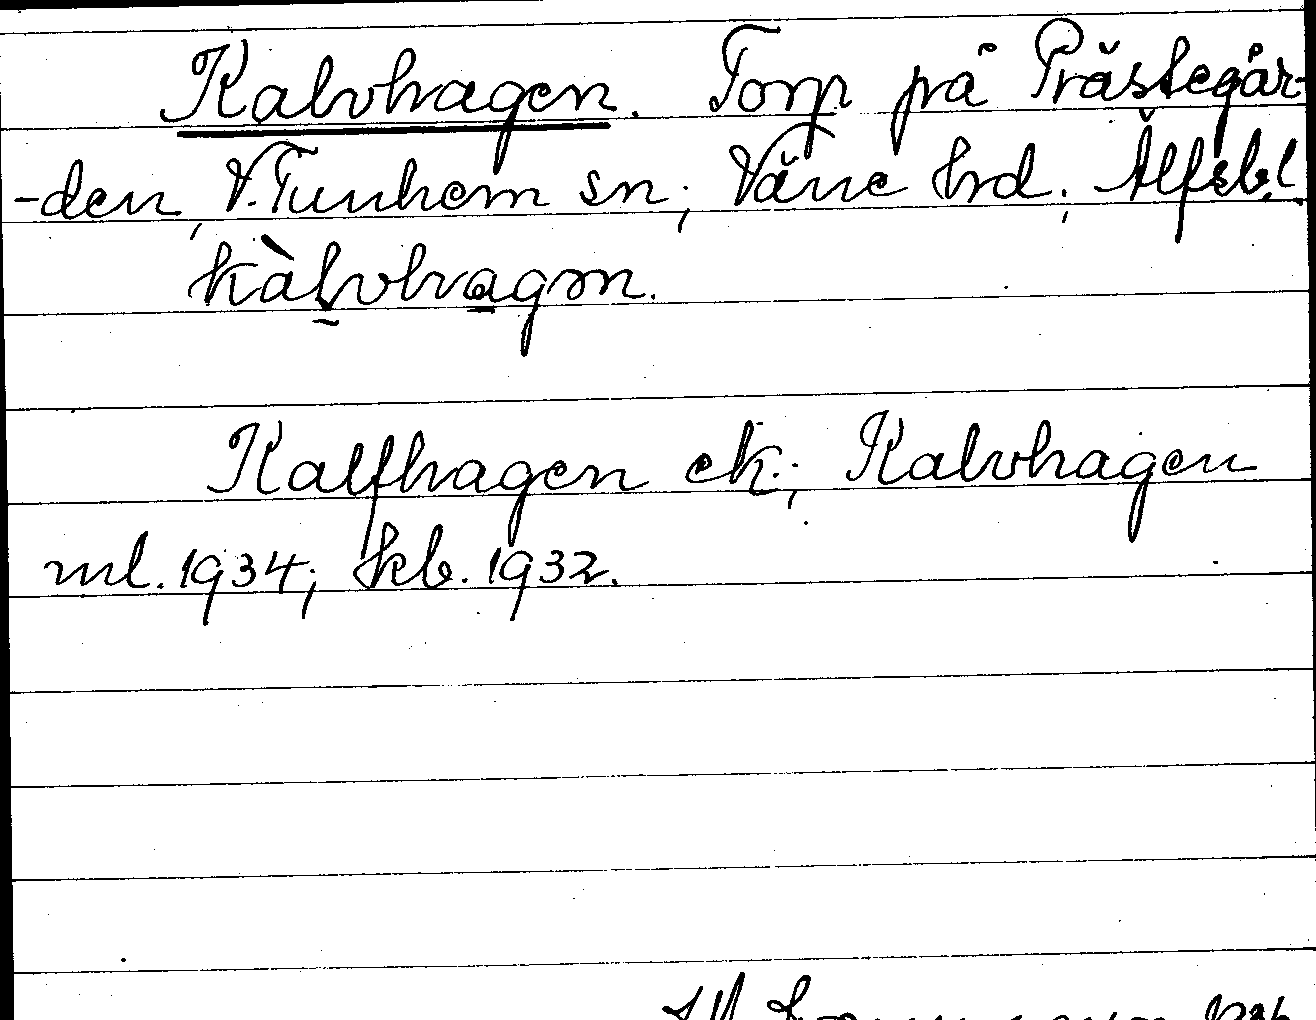 Kalvhagen. Torp på Prästegår-
-den, V. Tunhem sn; Väne hrd; Älfsb.l.
kàlvhagən.
Kalfhagen ek.; Kalvhagen
ml. 1934; kb. 1932.